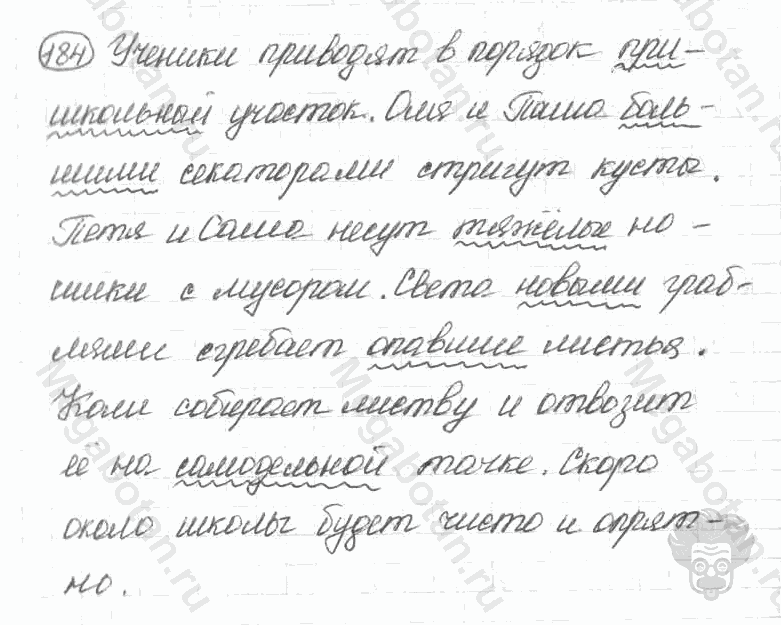 184 Ученики приводят в порядок при-
школьный участок. Оля и Паша боль-
шими секаторами стригут кусты.
Петя и Саша несут тяжёлые но-
силки с мусором. Света новыми граб-
лями сгребает опавшие листья.
Коля собирает листву и отвозит
её на самодельной тачке. Скоро
около школы будет чисто и опрят-
но.
Megabotan.ru